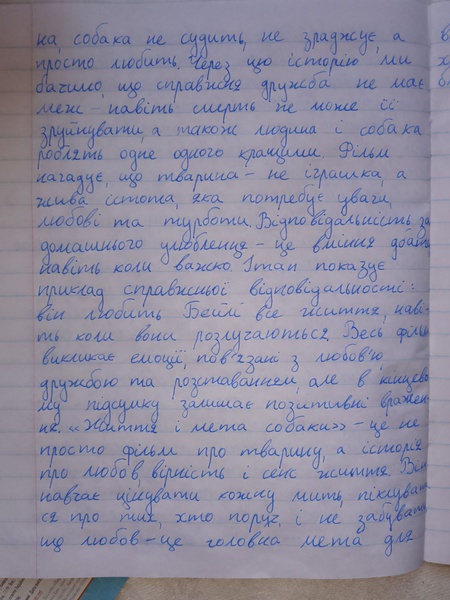 на, собака не судить, не зраджує, а
просто любить. Через цю історію, ми
бачимо, що справжня дружба не має
меж – навіть смерть не може її
зруйнувати, а також людина і собака
роблять одне одного кращими. Фільм
нагадує, що тварина – не іграшка, а
жива істота, яка потребує уваги,
любові та турботи. Відповідальність за
домашнього улюбленця – це вміння дбати
навіть коли важко. Ітан показує
приклад справжньої відповідальності:
він любить Бейлі все життя, наві-
ть коли вони розлучаються. Весь фільм
викликає емоції, пов'язані з любов'ю,
дружбою та розставанням, але в кінцево-
му підсумку залишає позитивні вражен-
ня. «Життя і мета собаки» – це не
просто фільм про тварину, а історія
про любов, вірність і сенс життя. Він
навчає цінувати кожну мить, піклуват
ся про тих, хто поруч, і не забувати
що любов – це головна мета для